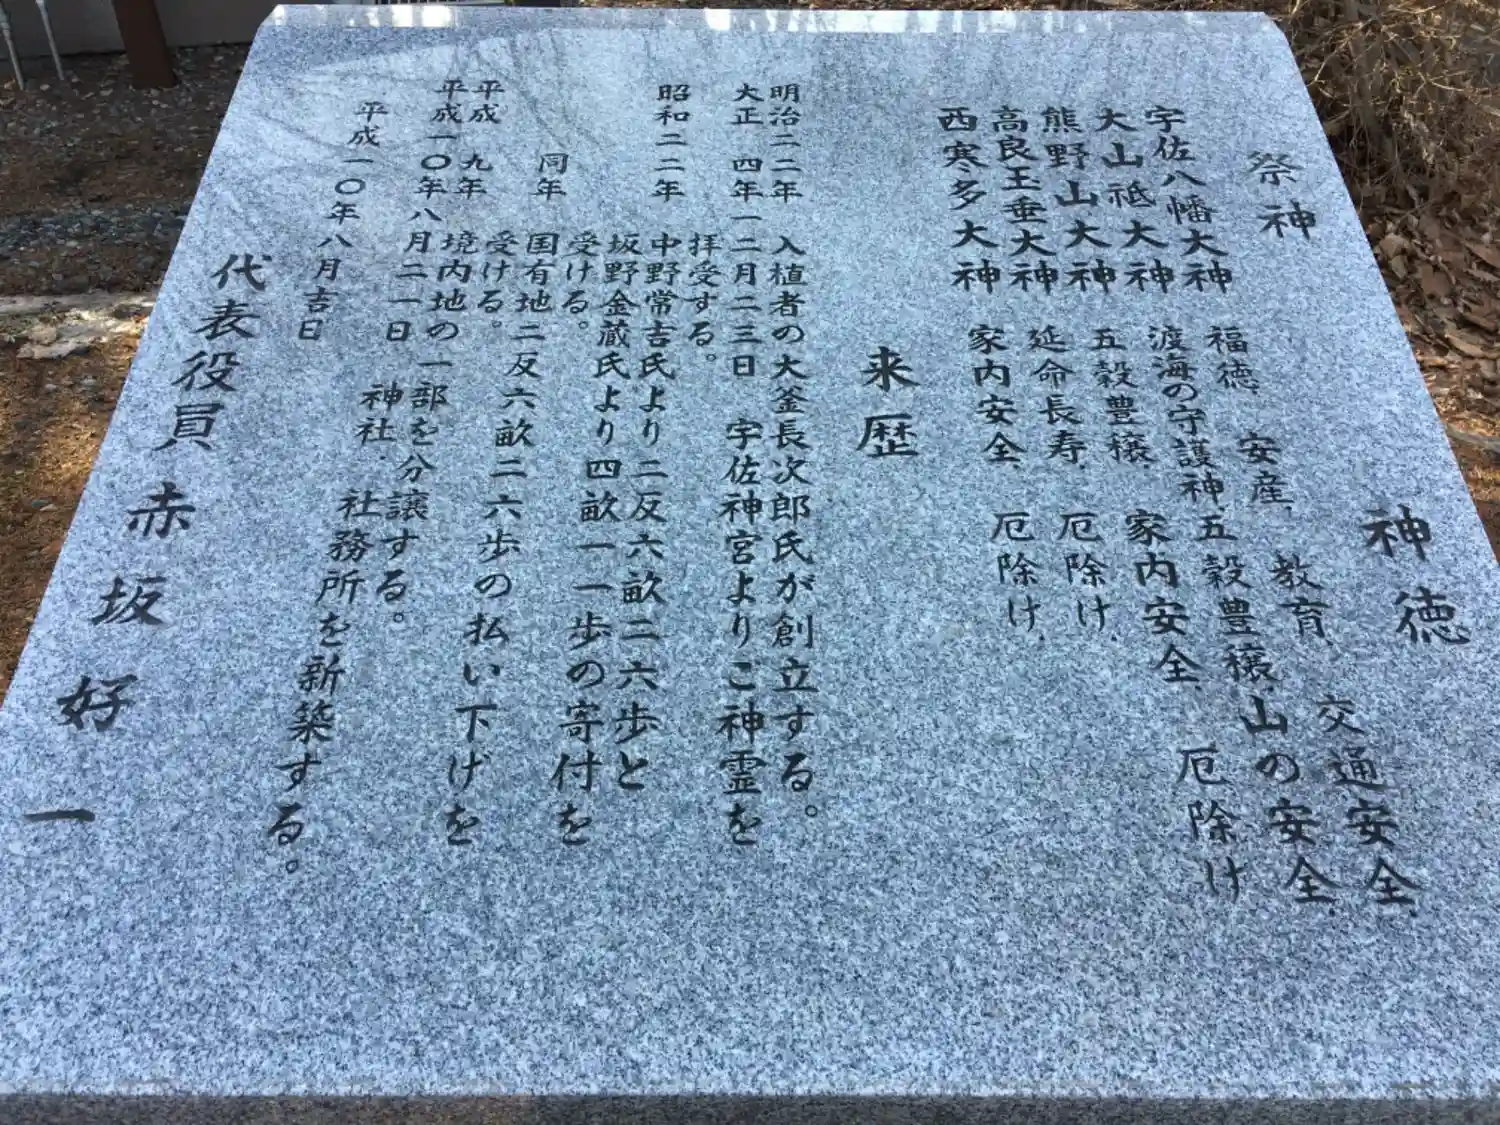 祭神 神徳
宇佐八幡大神 福徳、安産、教育、交通安全、
大山祗大神 渡海の守護神、五穀豊穣、山の安全、
熊野山大神 五穀豊穣、家内安全、厄除け
高良玉垂大神 延命長寿、厄除け、
西寒多大神 家内安全、厄除け、
来歴
明治二二年 入植者の大釜長次郎氏が創立する。
大正 四年一二月二三日 宇佐神宮よりご神霊を
拝受する。
昭和二二年 中野常吉氏より二反六畝二六歩と
坂野金蔵氏より四畝一一歩の寄付を
受ける。
同年 国有地二反六畝二六歩の払い下げを
受ける。
平成 九年 境内地の一部を分譲する。
平成一〇年八月二一日 神社、社務所を新築する。
平成一〇年八月吉日
代表役員 赤坂好一